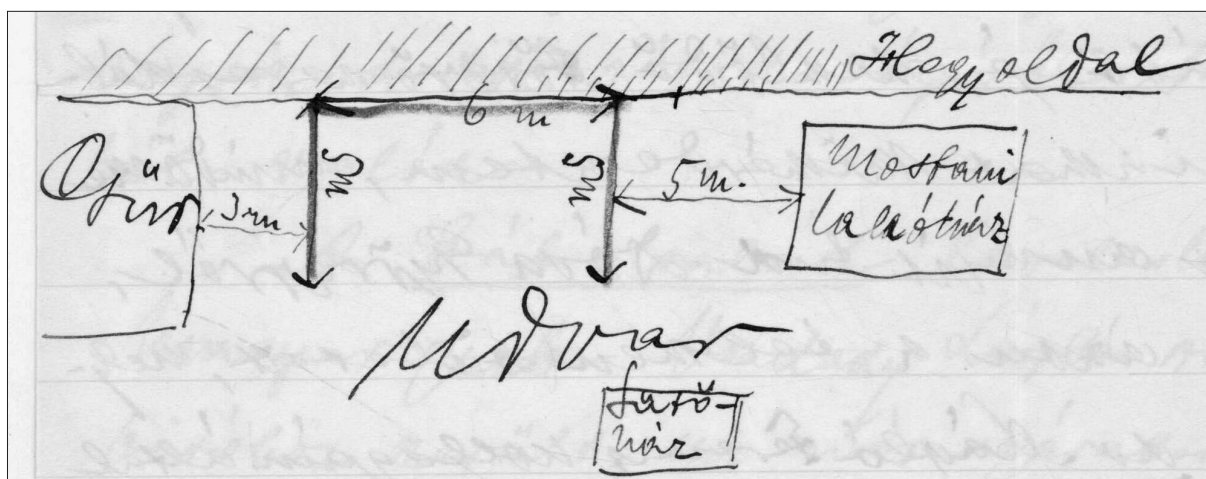 Hegyoldal
6 m
Csűr
3 m
5 m
5 m
5 m.
Mostani
lakóház
Udvar
Sütő-
ház